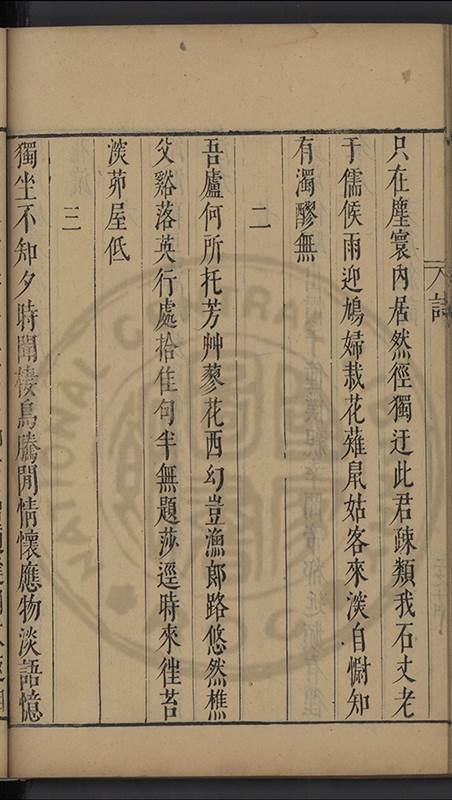 只在塵寰內居然徑獨迂此君疎類我石丈老
于儒候雨迎鳩婦栽花薙鼠姑客來淡自慰知
有濁醪無
二
吾廬何所托芳艸蓼花西幻豈漁郎路悠然樵
父谿落英行處拾佳句半無題莎逕時來徃苔
淡茆屋低
三
獨坐不知夕時聞棲鳥騰閒情懷應物淡語憶